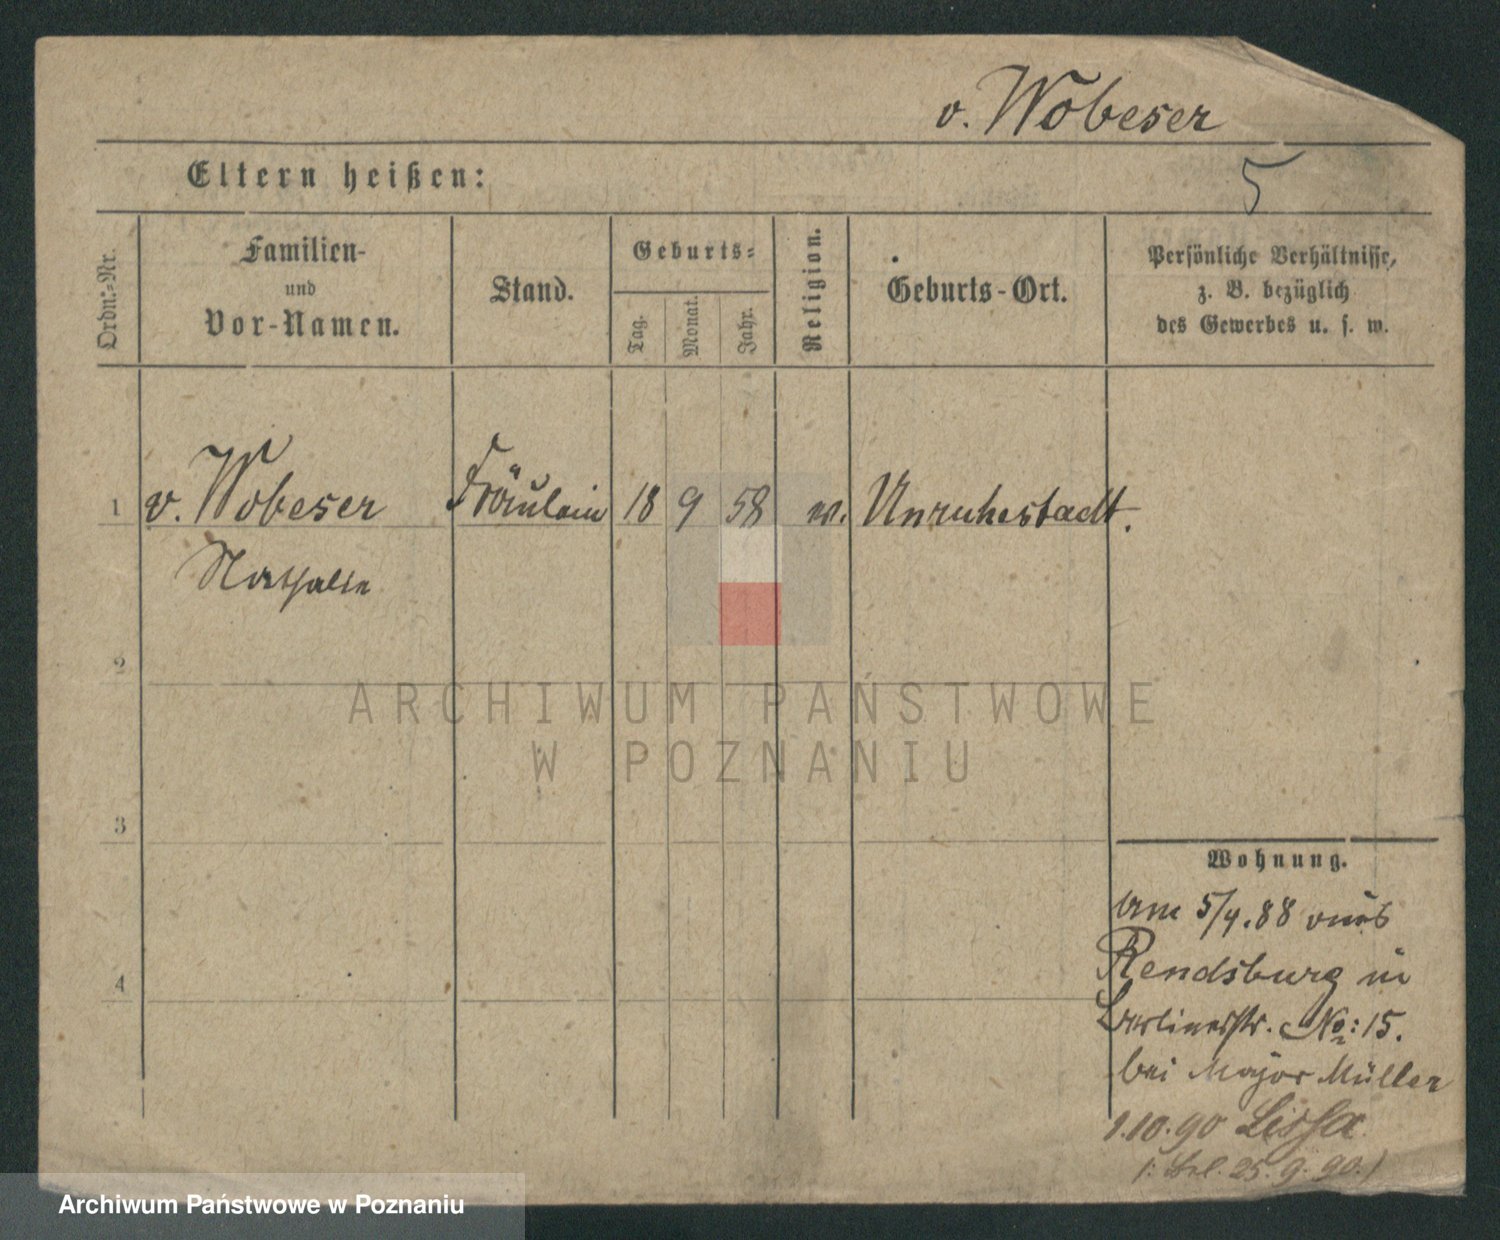 v. Wobeser
Eltern heißen:
5
Ordn.-Nr.
Familien-
und
Vor-Namen.
Stand.
Geburts-
Tag.
Monat.
Jahr.
Religion.
Geburts-Ort.
Persönliche Verhältnisse,
z. B. bezüglich
des Gewerbes u. s. w.
1 v. Wobeser Fräulein 18 9 58 ev. Unruhestadt.
Nathalie
2
ARCHIWUM PAŃSTWOWE
W POZNANIU
3
Wohnung.
am 5/4.88 aus
4
Rendsburg in
Berlinerstr. No: 15.
bei Major Müller
1.10.90 Lissa
25.9.90.)
Archiwum Państwowe w Poznaniu